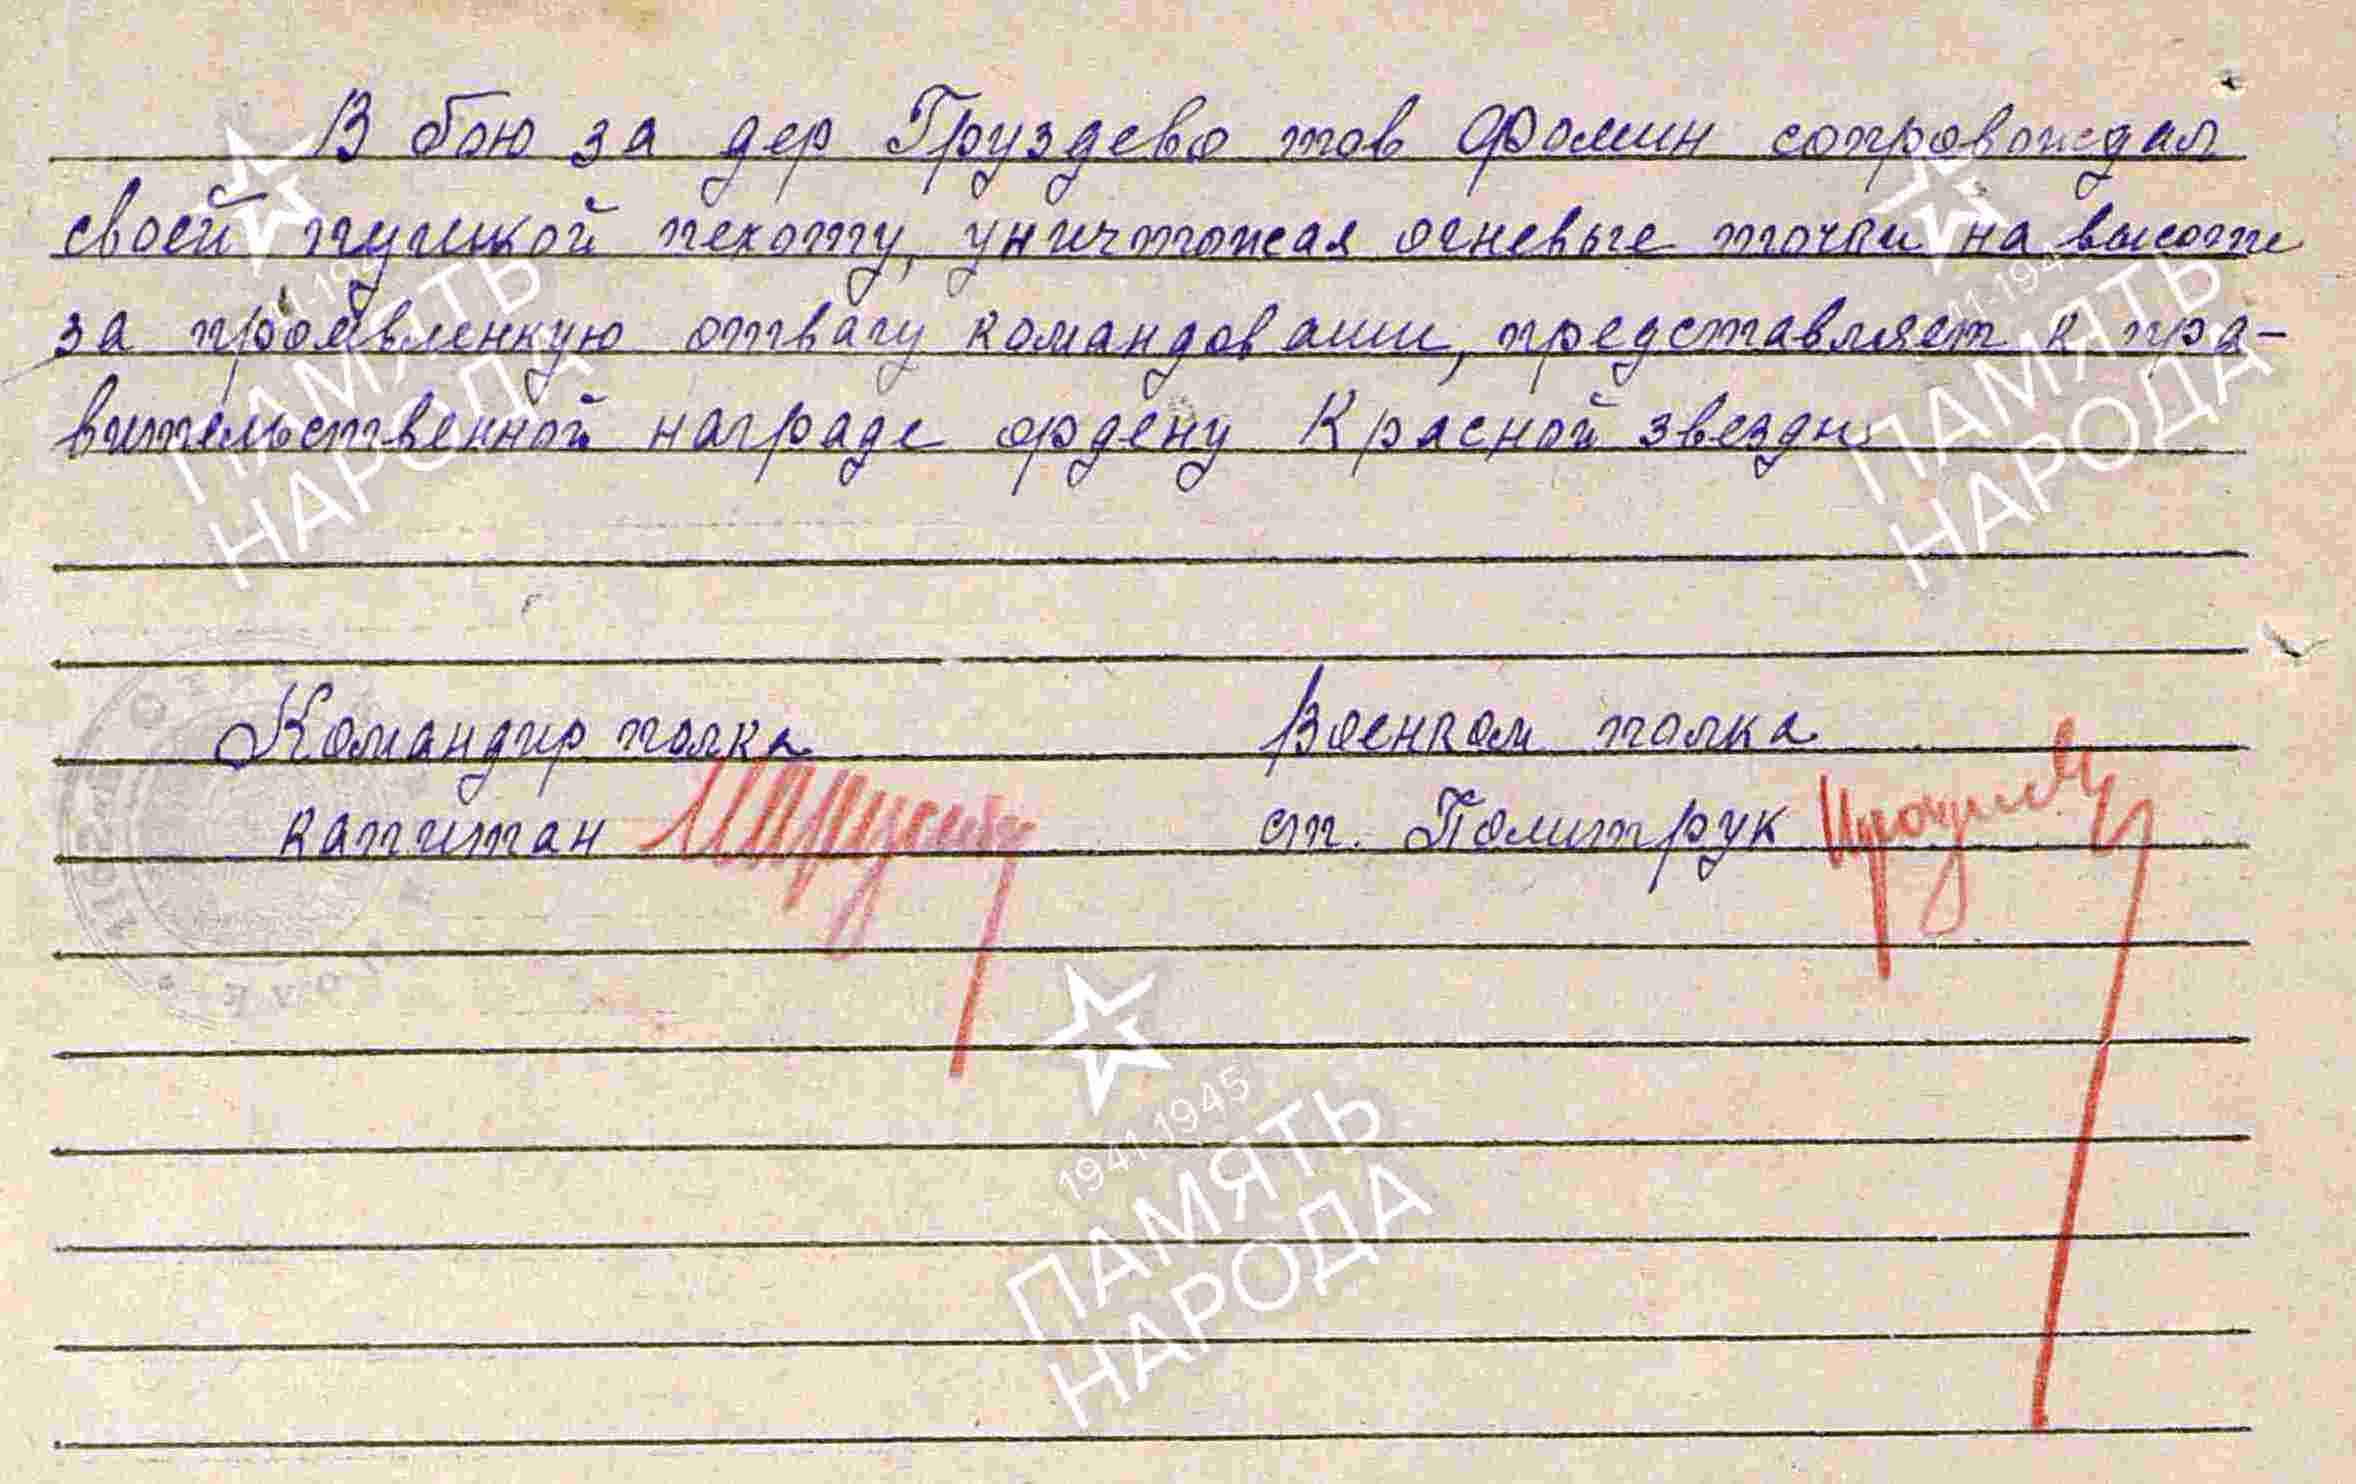 В бою за дер Груздево тов Фомин сопровождал
своей пушкой пехоту, уничтожая огневые точки на высоте
за проявленную отвагу командовании, представляет к пра-
вительственной награде ордену Красной звезды
Командир полка
Военком полка
капитан
ст. Политрук
1941-1945
ПАМЯТЬ
НАРОДА
ПАМЯТЬ
НАРОДА
1941-1945
ПАМЯТЬ
НАРОДА